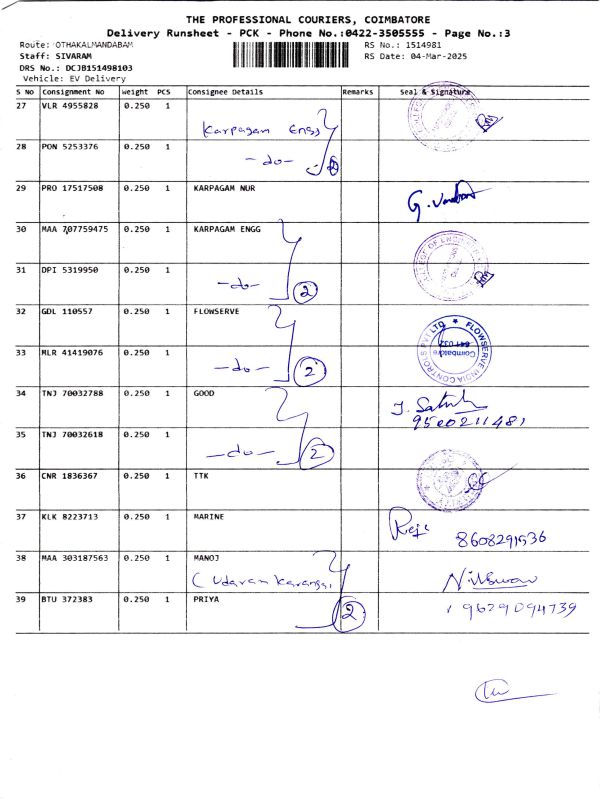 THE PROFESSIONAL COURIERS, COIMBATORE
Delivery Runsheet - PCK - Phone No.:0422-3505555 - Page No.:3
Route: OTHAKALMANDABAM RS No.: 1514981
Staff: SIVARAM RS Date: 04-Mar-2025
DRS No.: DCJB151498103
Vehicle: EV Delivery
S No Consignment No Weight PCS Consignee Details Remarks Seal & Signature
27 VLR 4955828 0.250 1
Karpagam Engg
28 PON 5253376 0.250 1
-do- 2
29 PRO 17517508 0.250 1 KARPAGAM NUR
30 MAA 707759475 0.250 1 KARPAGAM ENGG
31 DPI 5319950 0.250 1
-do- 2
32 GDL 110557 0.250 1 FLOWSERVE
FLOWSERVE INDIA CONTROLS PVT LTD
Coimbatore
33 MLR 41419076 0.250 1
-do- 2
34 TNJ 70032788 0.250 1 GOOD
9500211481
35 TNJ 70032618 0.250 1
-do- 2
36 CNR 1836367 0.250 1 TTK
37 KLK 8223713 0.250 1 MARINE
8608291536
38 MAA 303187563 0.250 1 MANOJ
39 BTU 372383 0.250 1 PRIYA
2 9629094739